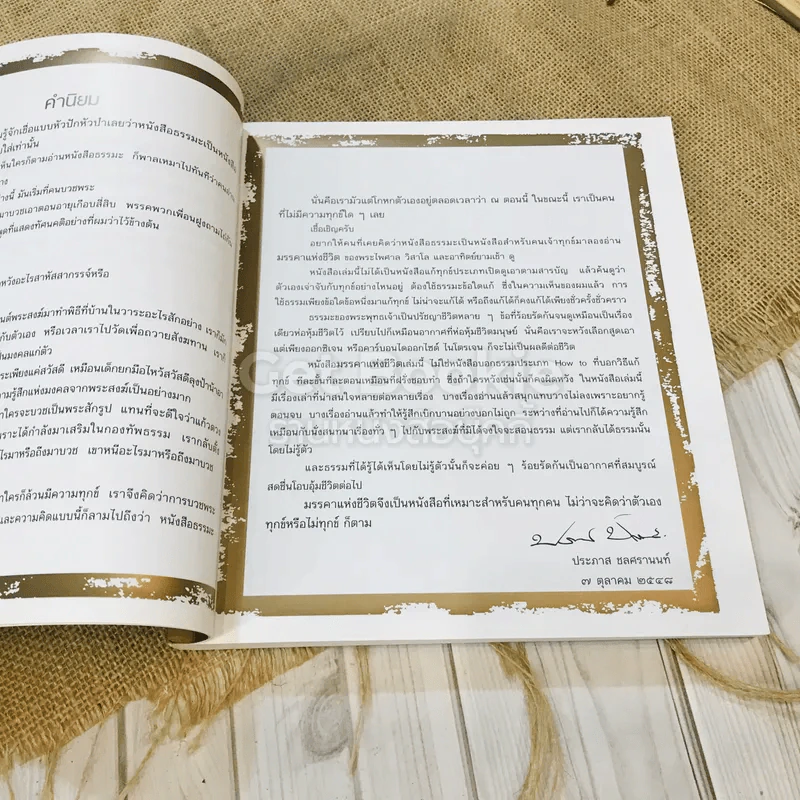 คำนิยม
รู้จักเชื่อแบบหัวปักหัวปำเลยว่าหนังสือธรรมะเป็นหนังสือ
ใส่เท่านั้น
เห็นใครก็ตามอ่านหนังสือธรรมะ ก็พาลเหมาไปทันทีว่าคน
าง
างนี้ มันเริ่มที่คนบวชพระ
มาบวชเอาตอนอายุเกือบสี่สิบ พรรคพวกเพื่อนฝูงถามไถ่กัน
ที่แสดงทัศนคติอย่างที่ผมว่าไว้ข้างต้น
หวังอะไรสาหัสสากรรจ์หรือ
นต์พระสงฆ์มาทำพิธีที่บ้านในวาระอะไรสักอย่าง เราก็มัก
กับตัวเอง หรือเวลาเราไปวัดเพื่อถวายสังฆทาน เราก็
เป็นมงคลแก่ตัว
ระเพียงแค่สวัสดี เหมือนเด็กยกมือไหว้สวัสดีลุงป้าน้าอา
ความรู้สึกแห่งมงคลจากพระสงฆ์เป็นอย่างมาก
าใครจะบวชเป็นพระสักรูป แทนที่จะดีใจว่าแก้วดวง
เราะได้กำลังมาเสริมในกองทัพธรรม เรากลับตั้ง
ไรมาหรือถึงมาบวช เขาหนีอะไรมาหรือถึงมาบวช
าใครก็ล้วนมีความทุกข์ เราจึงคิดว่าการบวชพระ
และความคิดแบบนี้ก็ลามไปถึงว่า หนังสือธรรมะ
นั่นคือเรามัวแต่โกหกตัวเองอยู่ตลอดเวลาว่า ณ ตอนนี้ ในขณะนี้ เราเป็นคน
ที่ไม่มีความทุกข์ใด ๆ เลย
เชื่อเชิญครับ
อยากให้คนที่เคยคิดว่าหนังสือธรรมะเป็นหนังสือสำหรับคนเจ้าทุกข์มาลองอ่าน
มรรคาแห่งชีวิต ของพระไพศาล วิสาโล และอาทิตย์ยามเช้า ดู
หนังสือเล่มนี้ไม่ได้เป็นหนังสือแก้ทุกข์ประเภทเปิดดูเอาตามสารบัญ แล้วค้นดูว่า
ตัวเองเจ่าจับกับทุกข์อย่างไหนอยู่ ต้องใช้ธรรมะข้อใดแก้ ซึ่งในความเห็นของผมแล้ว การ
ใช้ธรรมะเพียงข้อใดข้อหนึ่งมาแก้ทุกข์ ไม่น่าจะแก้ได้ หรือถึงแก้ได้ก็คงแก้ได้เพียงชั่วครั้งชั่วคราว
ธรรมะของพระพุทธเจ้าเป็นปรัชญาชีวิตหลาย ๆ ข้อที่ร้อยรัดกันจนดูเหมือนเป็นเรื่อง
เดียวห่อหุ้มชีวิตไว้ เปรียบไปก็เหมือนอากาศที่ห่อหุ้มชีวิตมนุษย์ นั่นคือเราจะหวังเลือกสูดเอา
แต่เพียงออกซิเจน หรือคาร์บอนไดออกไซด์ ไนโตรเจน ก็จะไม่เป็นผลดีต่อชีวิต
หนังสือมรรคาแห่งชีวิตเล่มนี้ ไม่ใช่หนังสือบอกธรรมประเภท How to ที่บอกวิธีแก้
ทุกข์ ทีละขั้นทีละตอนเหมือนที่ฝรั่งชอบทำ ซึ่งถ้าใครหวังเช่นนั้นก็คงผิดหวัง ในหนังสือเล่มนี้
มีเรื่องเล่าที่น่าสนใจหลายต่อหลายเรื่อง บางเรื่องอ่านแล้วสนุกแทบวางไม่ลงเพราะอยากรู้
ตอนจบ บางเรื่องอ่านแล้วทำให้รู้สึกเบิกบานอย่างบอกไม่ถูก ระหว่างที่อ่านไปก็ได้ความรู้สึก
เหมือนกับนั่งสนทนาเรื่องทั่ว ๆ ไปกับพระสงฆ์ที่มิได้จงใจจะสอนธรรม แต่เรากลับได้ธรรมนั้น
โดยไม่รู้ตัว
และธรรมที่ได้รู้ได้เห็นโดยไม่รู้ตัวนั้นก็จะค่อย ๆ ร้อยรัดกันเป็นอากาศที่สมบูรณ์
สดชื่นโอบอุ้มชีวิตต่อไป
มรรคาแห่งชีวิตจึงเป็นหนังสือที่เหมาะสำหรับคนทุกคน ไม่ว่าจะคิดว่าตัวเอง
ทุกข์หรือไม่ทุกข์ ก็ตาม
ประภาส ชลศรานนท์
๗ ตุลาคม ๒๕๔๘